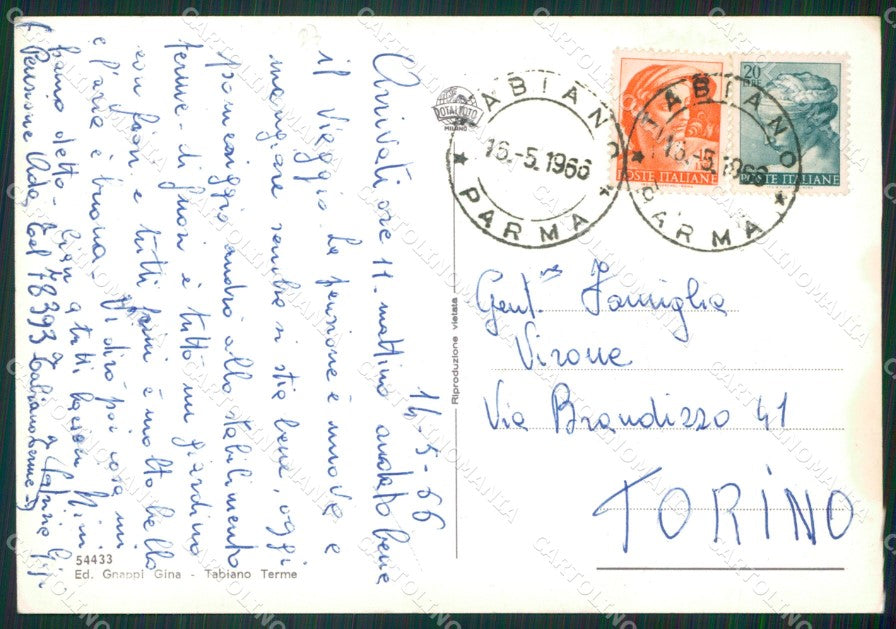 14-5-66
Arrivati ore 11 - mattino andato bene
il viaggio. La pensione è nuova e
mangiare sembra si stia bene, oggi
pomeriggio andrò allo stabilimento
terme - di fuori è tutto un giardino
con fiori e tutti è molto bello
e l'aria è buona - Vi dirò poi cosa mi
hanno detto - Ciao a tutti bacioni Mini
( Pensione Ada, tel 78393 Tabiano terme )
54433
Ed. Gnappi Gina - Tabiano Terme
Riproduzione vietata
ROTALFOTO
MILANO
TABIANO
16.-5.1966
PARMA
TABIANO
16.-5.1966
PARMA
POSTE ITALIANE
20
LIRE
POSTE ITALIANE
Gent.ma Famiglia
Virone
Via Brandizzo 41
TORINO
CARTOLINOMANIA